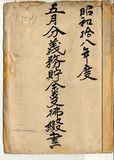 昭和拾八年度
五月分義務貯金支拂綴書